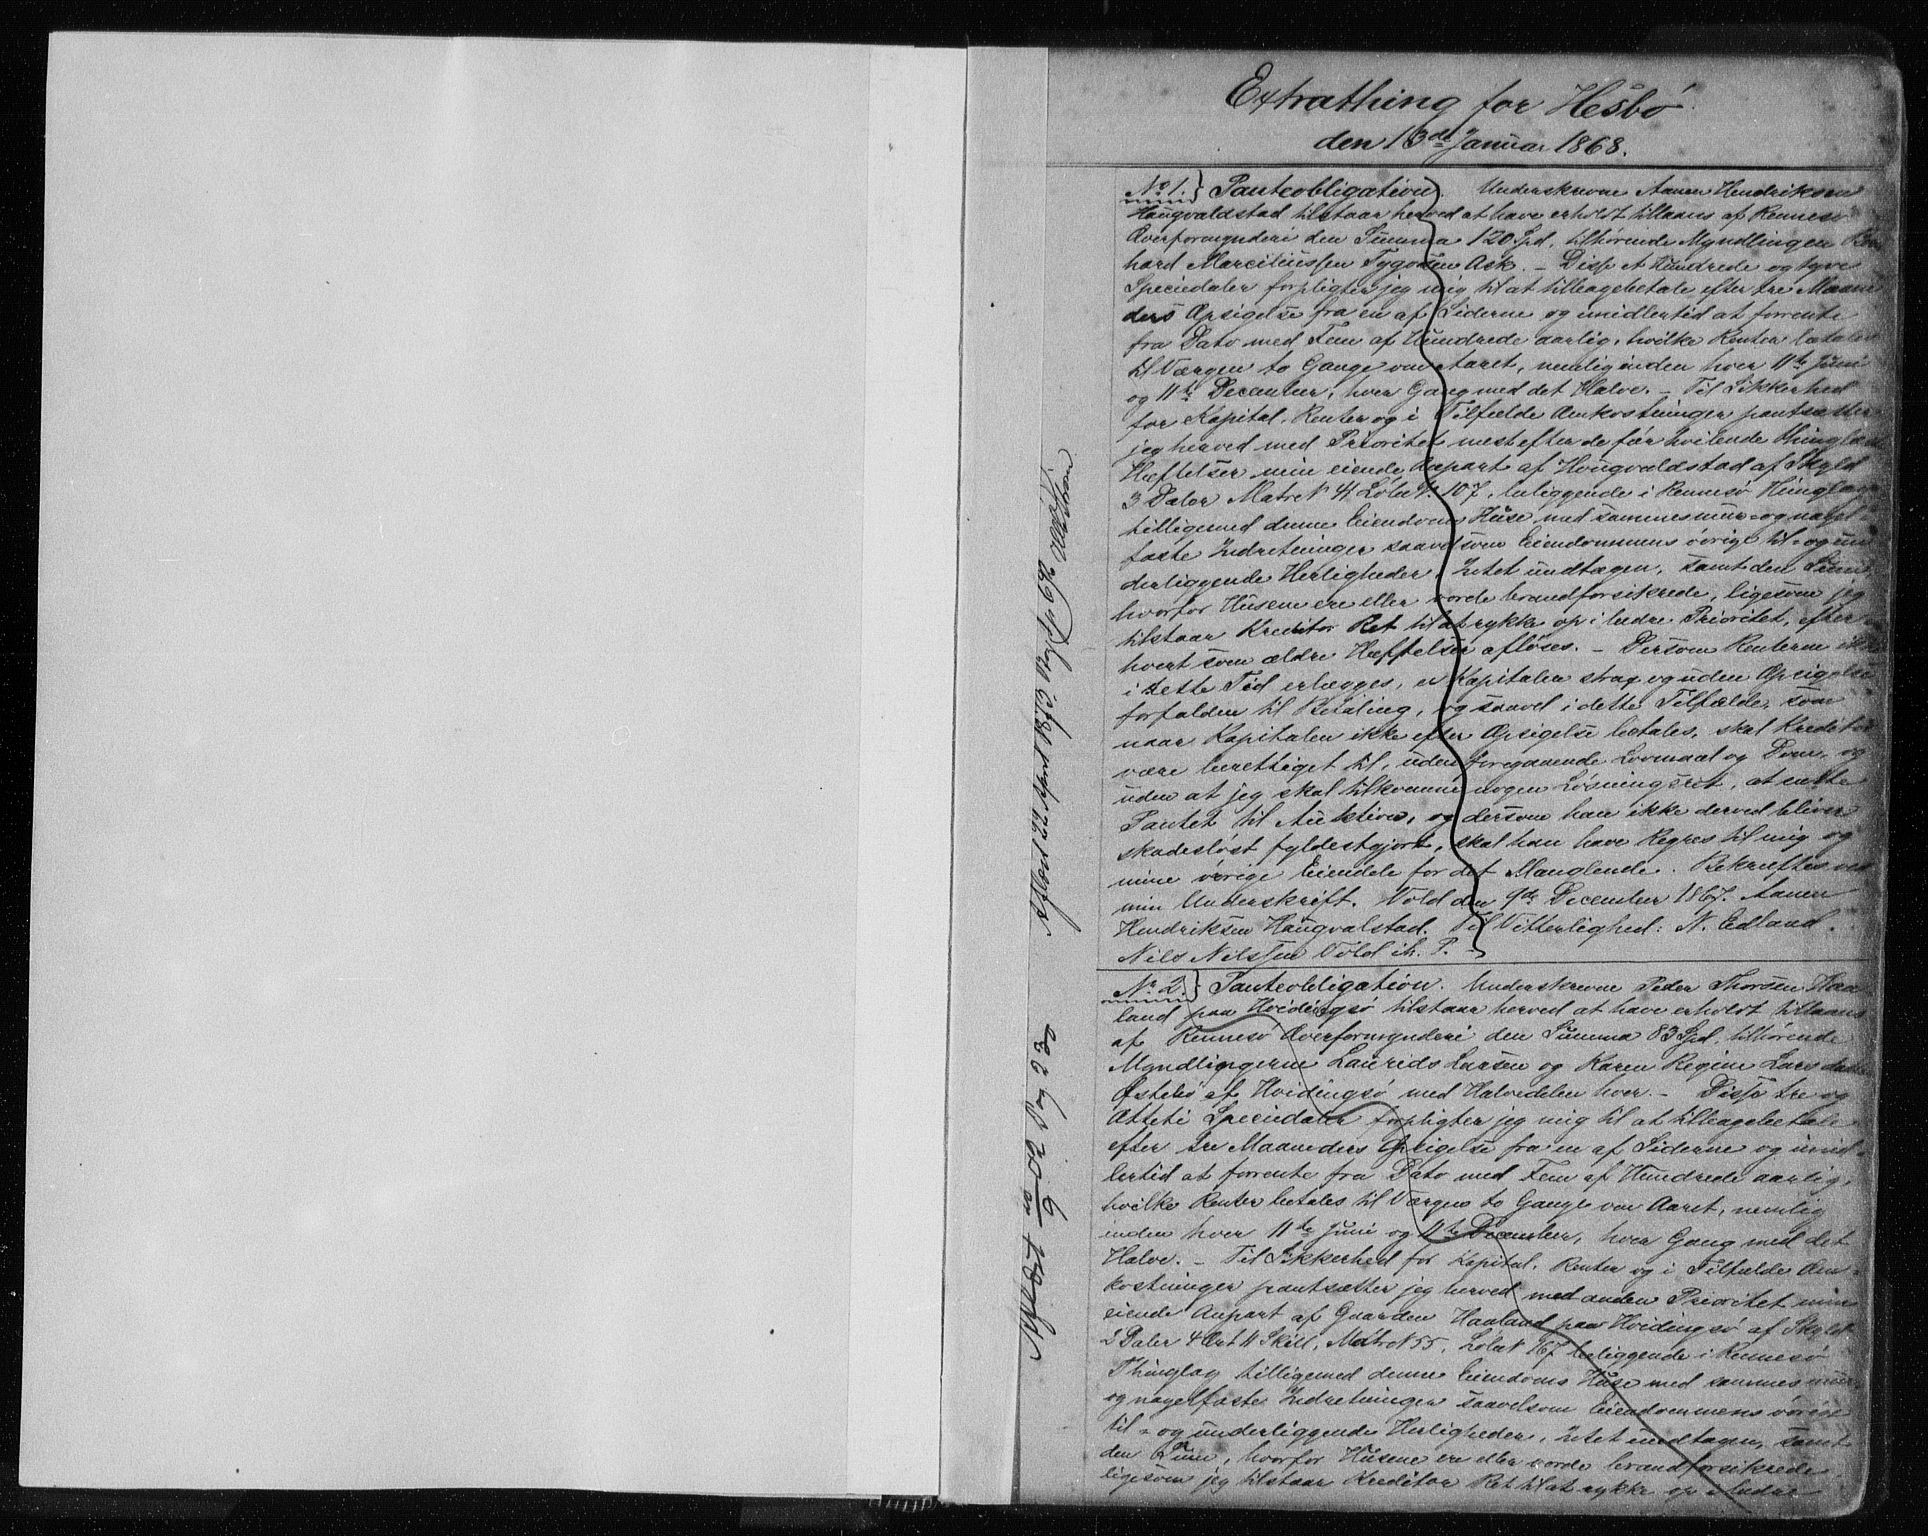 Extrathing for Hesbö
den 13de Januar 1868.
No 1. Panteobligation. Underskrevne Aanen Hendriksen
Haugvaldstad tilstaar herved at have erholdt tillaans af Rennesö
Overformynderi den Summa 120 Spd, tilhörende Myndlingen
hard Marciliussen Tygoesen Ask. – Disse Et Hundrede og tyve
Speciedaler forpligter jeg mig til at tilbagebetale efter tre Maane
ders Opsigelse fra en af Siderne og imidlertid at forrente
fra Dato med Fem af Hundrede aarlig, hvilke Renter betales
til Værgen to Gange om Aaret, nemlig inden hver 11te Juni
og 11te December, hver Gang med det Halve. – Til Sikkerhed
for Kapital, Renter og i Tilfælde Omkostninger pantsætter
jeg herved med Prioritet næst efter de før hvilende thinglæste
Hæftelser min eiende Anpart af Hougvaldstad af Skyld
3 Daler Matr N 41 Löbe N. 107, beliggende i Rennesö Thinglag
tilligemed denne Eiendoms Huse med sammes muur- og nagel-
faste Indretninger saavelsom Eiendommens övrige til- og un
derliggende Herligheder, Intet undtagen, samt den Sum,
hvorfor Husene ere eller vorde brandforsikrede, ligesom jeg
tilstaar Kreditor Ret til at rykke op i bedre Prioritet, efter-
hvert som ældre Hæftelser aflöses. – Dersom Renterne ikke
i rette Tid erlægges, er Kapitalen strax og uden Opsigelse
forfalden til Betaling, og saavel i dette Tilfælde, som
naar Kapitalen ikke efter Opsigelse betales, skal Kreditor
være berettiget til, uden foregaaende Lovmaal og Dom, og
uden at jeg skal tilkomme nogen Løsningsret, at sætte
Pantet til Auktion, og dersom han ikke derved bliver
skadesløst fyldestgjort, skal han have Regres til mig og
mine övrige Eiendele for det Manglende. Bekræftes ved
min Underskrift. Vold den 9de December 1867. Aanen
Hendriksen Haugvalstad. Til Vitterlighed: N. Edland.
Nils Nilssen Vold ih. P.
Aflæst 22 April 1873
No 2. Panteobligation. Underskrevne Peder Thorsen Haa
land paa Hvidingsö tilstaar herved at have erholdt tillaans
af Rennesö Overformynderi den Summa 83 Spd, tilhörende
Myndlingerne Laurids Larsen og Karen Regine Larsdatter
Østebö af Hvidingsö med Halvdelen hver. – Disse tre og
Otteti Speciedaler forpligter jeg mig til at tilbagebetale
efter tre Maaneders Opsigelse fra en af Siderne og imid-
lertid at forrente fra Dato med Fem af Hundrede aarlig,
hvilke Renter betales til Værgen to Gange om Aaret, nemlig
inden hver 11te Juni og 11te December, hver Gang med det
Halve. – Til Sikkerhed for Kapital, Renter og i Tilfælde Om-
kostninger pantsætter jeg herved med anden Prioritet min
eiende Anpart af Gaarden Haaland paa Hvidingsö af Skyld
2 Daler 4 Ort 11 Skill, Matr N 55, Löbe N 167 beliggende i Rennesö
Thinglag tilligemed denne Eiendoms Huse med sammes muur-
og nagelfaste Indretninger saavelsom Eiendommens övrige
til- og underliggende Herligheder, Intet undtagen, samt
den Sum, hvorfor Husene ere eller vorde brandforsikrede,
ligesom jeg tilstaar Kreditor Ret til at rykke op i bedre